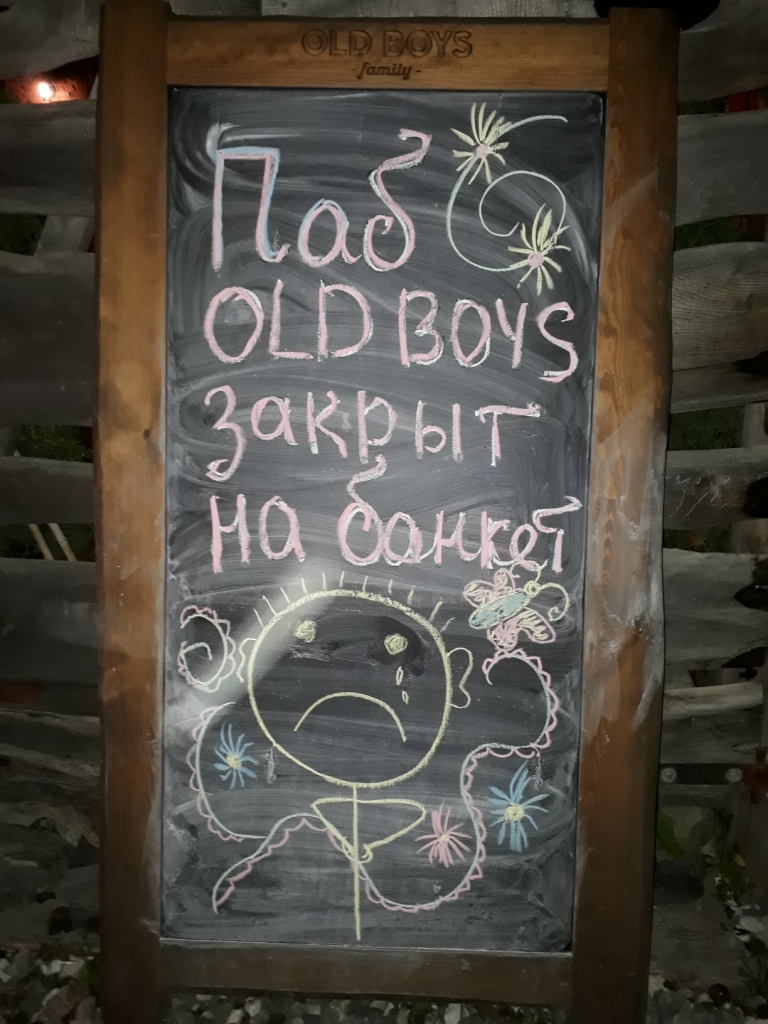 OLD BOYS
family -
Паб
OLD BOYS
закрыт
на банкет